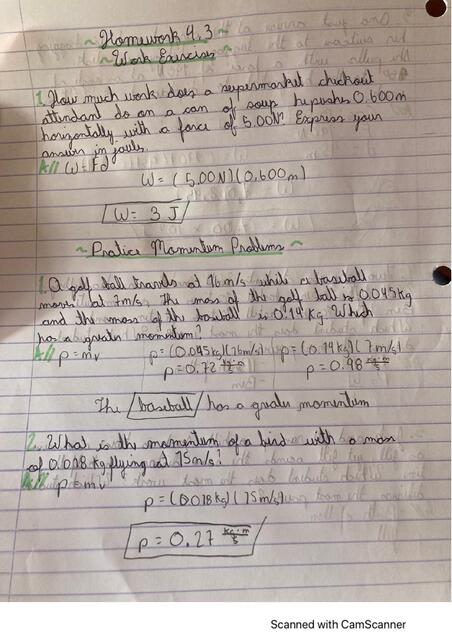 ~ Homework 4.3 ~
~ Work Exercises ~
1. How much work does a supermarket checkout
attendant do on a can of soup he pushes 0.600m
horizontally with a force of 5.00N? Express your
answer in joules.
A// W=Fd
W= (5.00N)(0.600m)
W= 3 J
~ Pratice Momentum Problems ~
1. A golf ball travels at 16m/s while a baseball
moves at 7m/s. The mass of the golf ball is 0.045kg
and the mass of the baseball is 0.14 kg. Which
has a greater momentum?
A// p=mv p=(0.045kg)(16m/s) p=(0.14kg)(7m/s)
p=0.72 kg·m/s p=0.98 kg·m/s
The baseball has a greater momentum
2. What is the momentum of a bird with a mass
of 0.018 kg flying at 15m/s?
A// p=mv
p=(0.018kg)(15m/s)
p=0.27 kg·m/s
Scanned with CamScanner